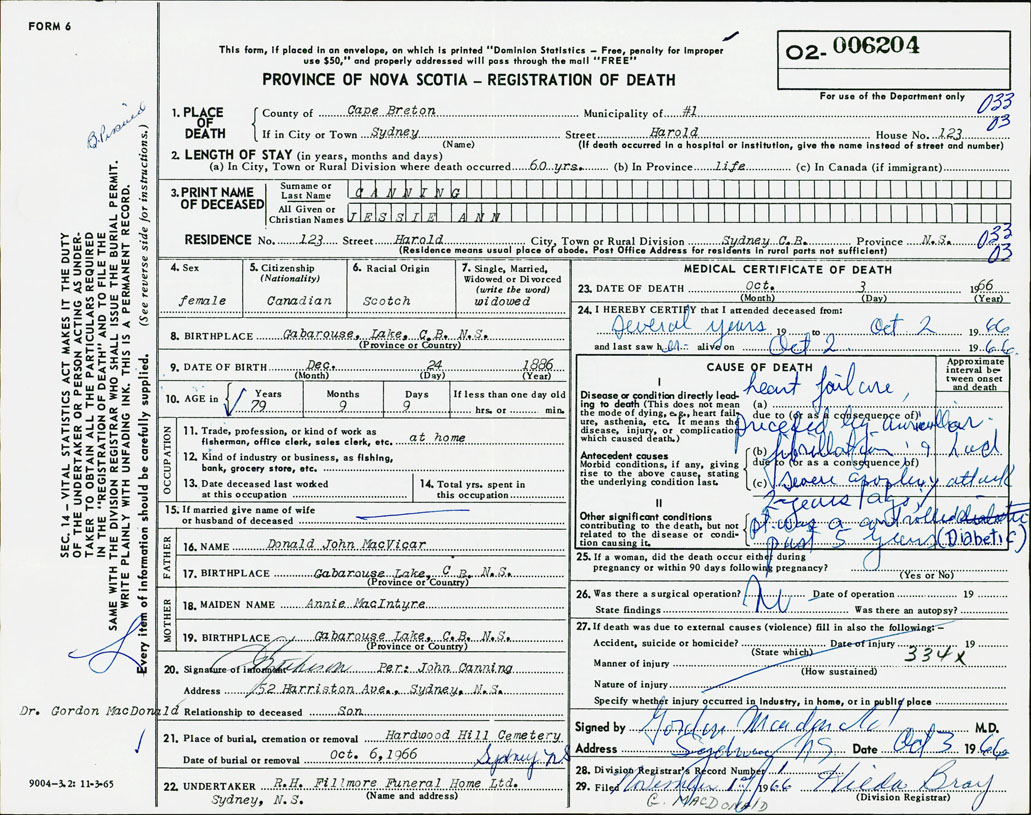 FORM 6
This form, if placed in an envelope, on which is printed "Dominion Statistics – Free, penalty for improper
use $50," and properly addressed will pass through the mail "FREE"
PROVINCE OF NOVA SCOTIA – REGISTRATION OF DEATH
02- 006204
For use of the Department only
033
03
1. PLACE OF DEATH County of Cape Breton Municipality of #1
If in City or Town Sydney Street Harold House No. 123
(Name) (If death occurred in a hospital or institution, give the name instead of street and number)
2. LENGTH OF STAY (in years, months and days)
(a) In City, Town or Rural Division where death occurred 60 yrs. (b) In Province life (c) In Canada (if immigrant)
3. PRINT NAME OF DECEASED Surname or Last Name CANNING
All Given or Christian Names JESSIE ANN
033
03
RESIDENCE No. 123 Street Harold City, Town or Rural Division Sydney C.B. Province N.S.
(Residence means usual place of abode. Post Office Address for residents in rural parts not sufficient)
4. Sex
female
5. Citizenship
(Nationality)
Canadian
6. Racial Origin
Scotch
7. Single, Married,
Widowed or Divorced
(write the word)
widowed
8. BIRTHPLACE Gabarouse, Lake, C.B. N.S.
(Province or Country)
9. DATE OF BIRTH Dec. 24 1886
(Month) (Day) (Year)
10. AGE in Years Months Days If less than one day old
79 9 9 hrs. or min.
OCCUPATION
11. Trade, profession, or kind of work as
fisherman, office clerk, sales clerk, etc. at home
12. Kind of industry or business, as fishing,
bank, grocery store, etc.
13. Date deceased last worked
at this occupation
14. Total yrs. spent in
this occupation
15. If married give name of wife
or husband of deceased
FATHER
16. NAME Donald John MacVicar
17. BIRTHPLACE Gabarouse Lake, C B. N.S.
(Province or Country)
MOTHER
18. MAIDEN NAME Annie MacIntyre
19. BIRTHPLACE Gabarouse Lake, C.B. N.S.
(Province or Country)
20. Signature of informant Per: John Canning
Address 52 Harriston Ave., Sydney, N.S.
Dr. Gordon MacDonald
Relationship to deceased Son
21. Place of burial, cremation or removal Hardwood Hill Cemetery
Date of burial or removal Oct. 6,1966 Sydney NS
22. UNDERTAKER R.H. Fillmore Funeral Home Ltd.
Sydney, N.S. (Name and address)
MEDICAL CERTIFICATE OF DEATH
23. DATE OF DEATH Oct. 3 1966
(Month) (Day) (Year)
24. I HEREBY CERTIFY that I attended deceased from:
Several years 19 to Oct 2 1966
and last saw her alive on Oct 2 1966.
CAUSE OF DEATH
Approximate
interval between onset
and death
I
Disease or condition directly leading to death (This does not mean
the mode of dying, e.g., heart failure, asthenia, etc. It means the
disease, injury, or complication
which caused death.)
(a) heart failure,
due to (or as a consequence of)
preceded by auricular
Antecedent causes
Morbid conditions, if any, giving
rise to the above cause, stating
the underlying condition last.
(b) fibrillation & had
due to (or as a consequence of)
(c) severe apoplexy attack
2 years ago
II
Other significant conditions
contributing to the death, but not
related to the disease or condition causing it.
pt was a controlled diabetic
past 5 years (Diabetic)
25. If a woman, did the death occur either during
pregnancy or within 90 days following pregnancy?
(Yes or No)
26. Was there a surgical operation? No Date of operation 19
State findings Was there an autopsy?
27. If death was due to external causes (violence) fill in also the following:–
Accident, suicide or homicide? Date of injury 19
(State which) 334x
Manner of injury
(How sustained)
Nature of injury
Specify whether injury occurred in industry, in home, or in public place
Signed by Gordon Macdonald M.D.
Address Sydney NS Date Oct 3 1966
28. Division Registrar's Record Number
29. Filed November 1st 1966 Hilda Bray
(Division Registrar)
G. MACDONALD
9004–3.2: 11-3-65
SEC. 14 – VITAL STATISTICS ACT MAKES IT THE DUTY
OF THE UNDERTAKER OR PERSON ACTING AS UNDERTAKER TO OBTAIN ALL THE PARTICULARS REQUIRED
IN THE "REGISTRATION OF DEATH" AND TO FILE THE
SAME WITH THE DIVISION REGISTRAR WHO SHALL ISSUE THE BURIAL PERMIT.
WRITE PLAINLY WITH UNFADING INK. THIS IS A PERMANENT RECORD.
Every item of information should be carefully supplied. (See reverse side for instructions.)